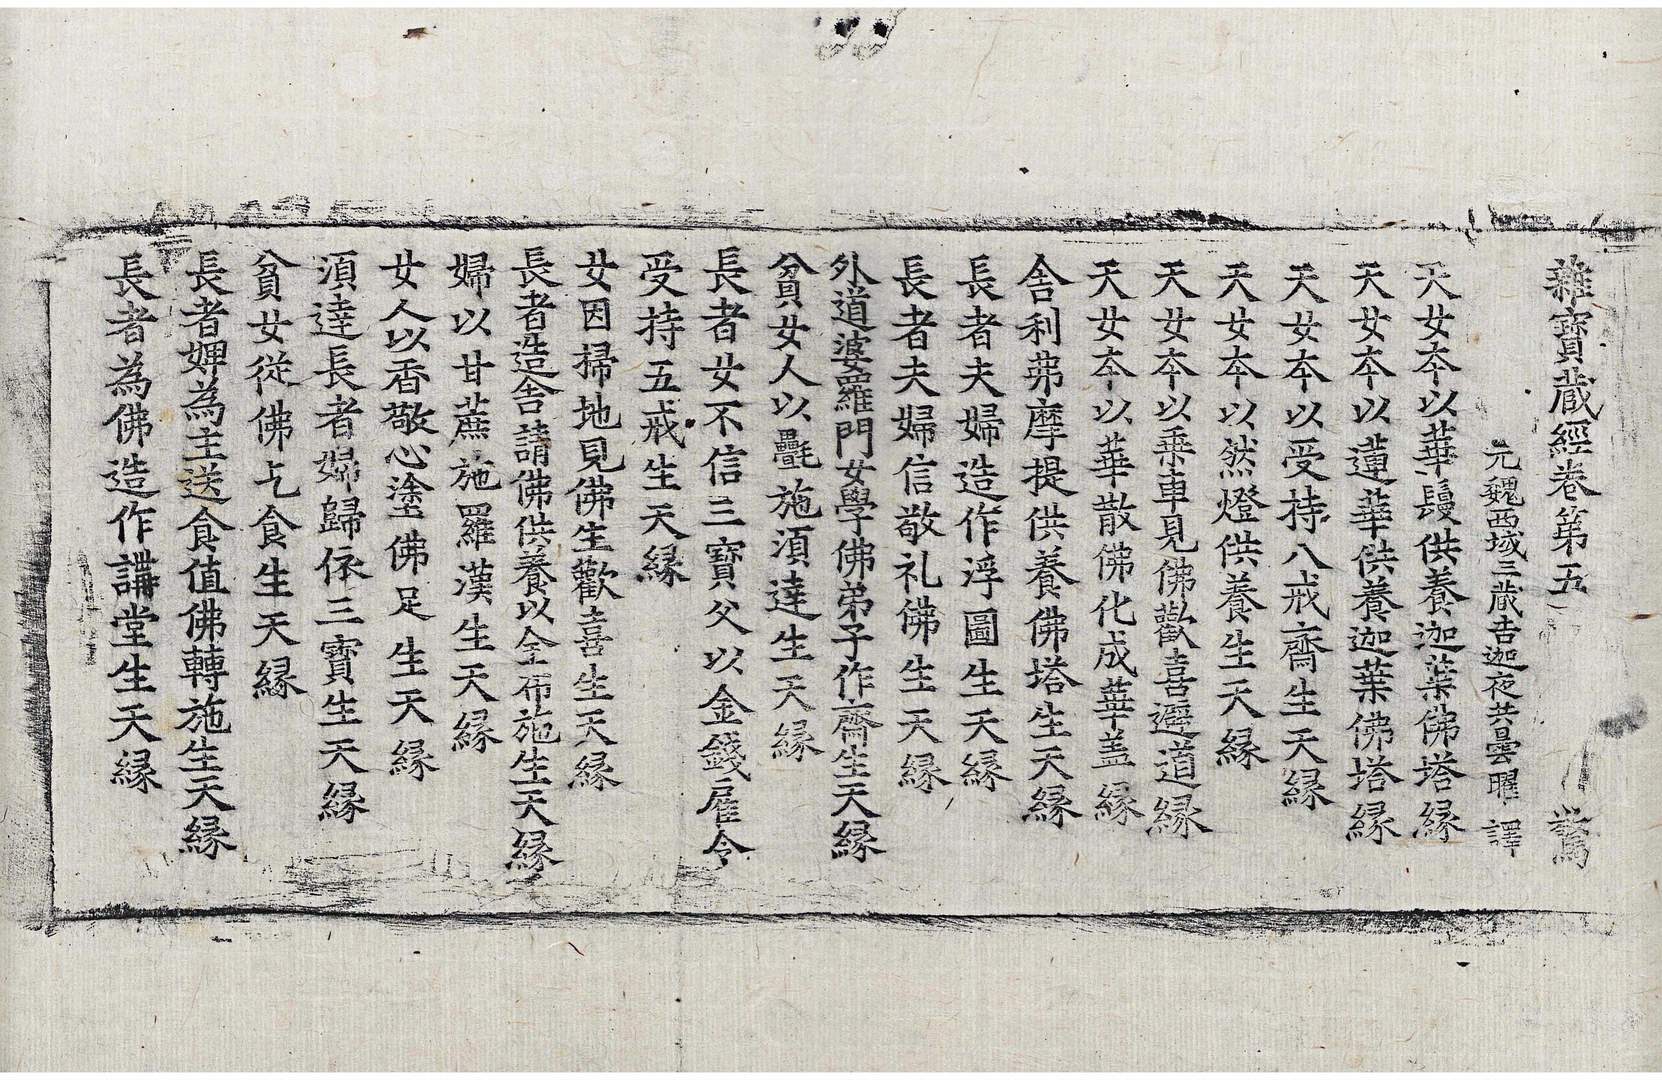 雜寶蔵經卷第五 驚
元魏西域三蔵吉迦夜共曇曜 譯
天女夲以華鬘供養迦葉佛塔縁
天女夲以蓮華供養迦葉佛塔縁
天女夲以受持八戒齋生天縁
天女夲以然燈供養生天縁
天女夲以乘車見佛歡喜避道縁
天女夲以華散佛化成華盖縁
舎利弗摩提供養佛塔生天縁
長者夫婦造作浮圖生天縁
長者夫婦信敬礼佛生天縁
外道婆羅門女學佛弟子作齋生天縁
貧女人以㲲施湏達生天縁
長者女不信三寶父以金錢雇令
受持五戒生天縁
女因掃地見佛生歡喜生天縁
長者造舎請佛供養以舎布施生天縁
婦以甘蔗施羅漢生天縁
女人以香敬心塗佛足生天縁
湏達長者婦歸依三寶生天縁
貧女從佛乞食生天縁
長者婢為主送食值佛轉施生天縁
長者為佛造作講堂生天縁